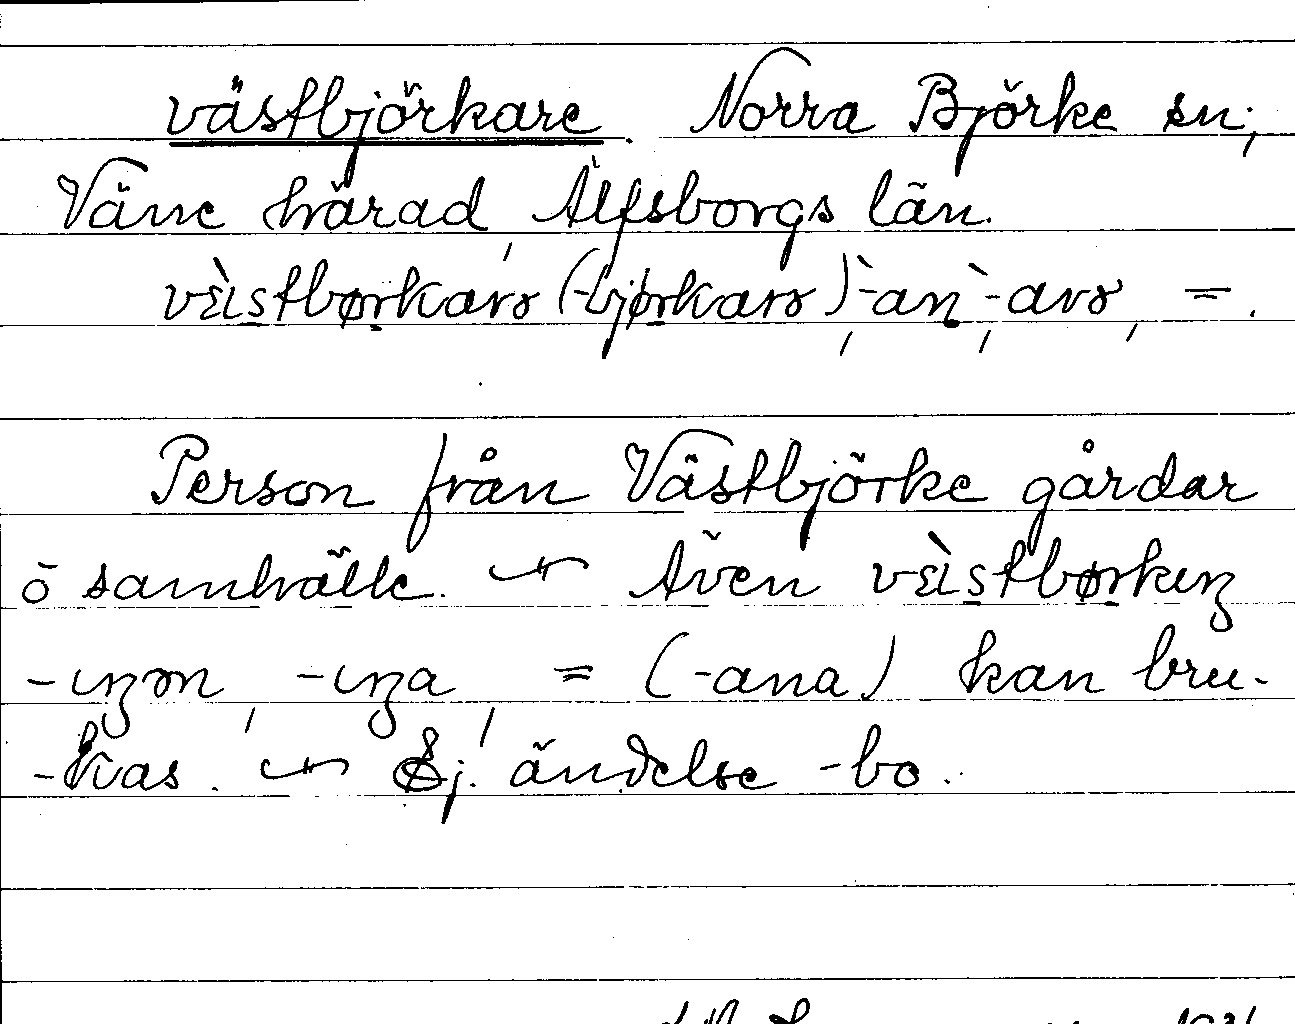 västbjörkare. Norra Björke sn;
Väne härad, Älfsborgs län.
vὲıstbørkarɘ (-bjørkarɘ), -àn, -àrɘ, =.
Person från Västbjörke gårdar
ō samhälle. ⁓ Även vὲıstbørkıŋ
-ıŋɘn, -ıŋa, = (-ana) kan bru-
-kas. ⁓ Ej ändelse -bo.